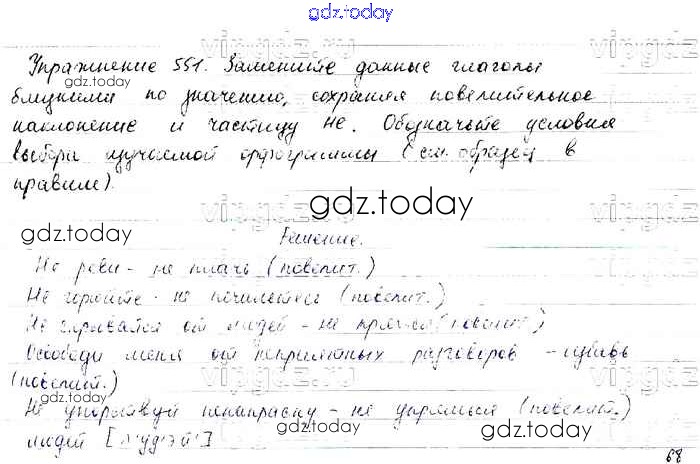 gdz.today
Упражнение 551. Замените данные глаголы
близкими по значению, сохраняя повелительное
наклонение и частицу не. Обозначьте условия
выбора изучаемой орфограммы (см. образец в
правиле).
gdz.today
gdz.today
gdz.today
Решение.
Не реви - не плачь (повелит.)
Не горюйте - не печальтесь (повелит.)
Не скрывайся от людей - не прячься (повелит.)
Освободи меня от неприятных разговоров - избавь
(повелит.)
Не упорствуй понапрасну - не упрямься (повелит.)
людей [л'уд'эй']
gdz.today
gdz.today
gdz.today
vipgdz.ru
vipgdz.ru
vipgdz.ru
vipgdz.ru
68